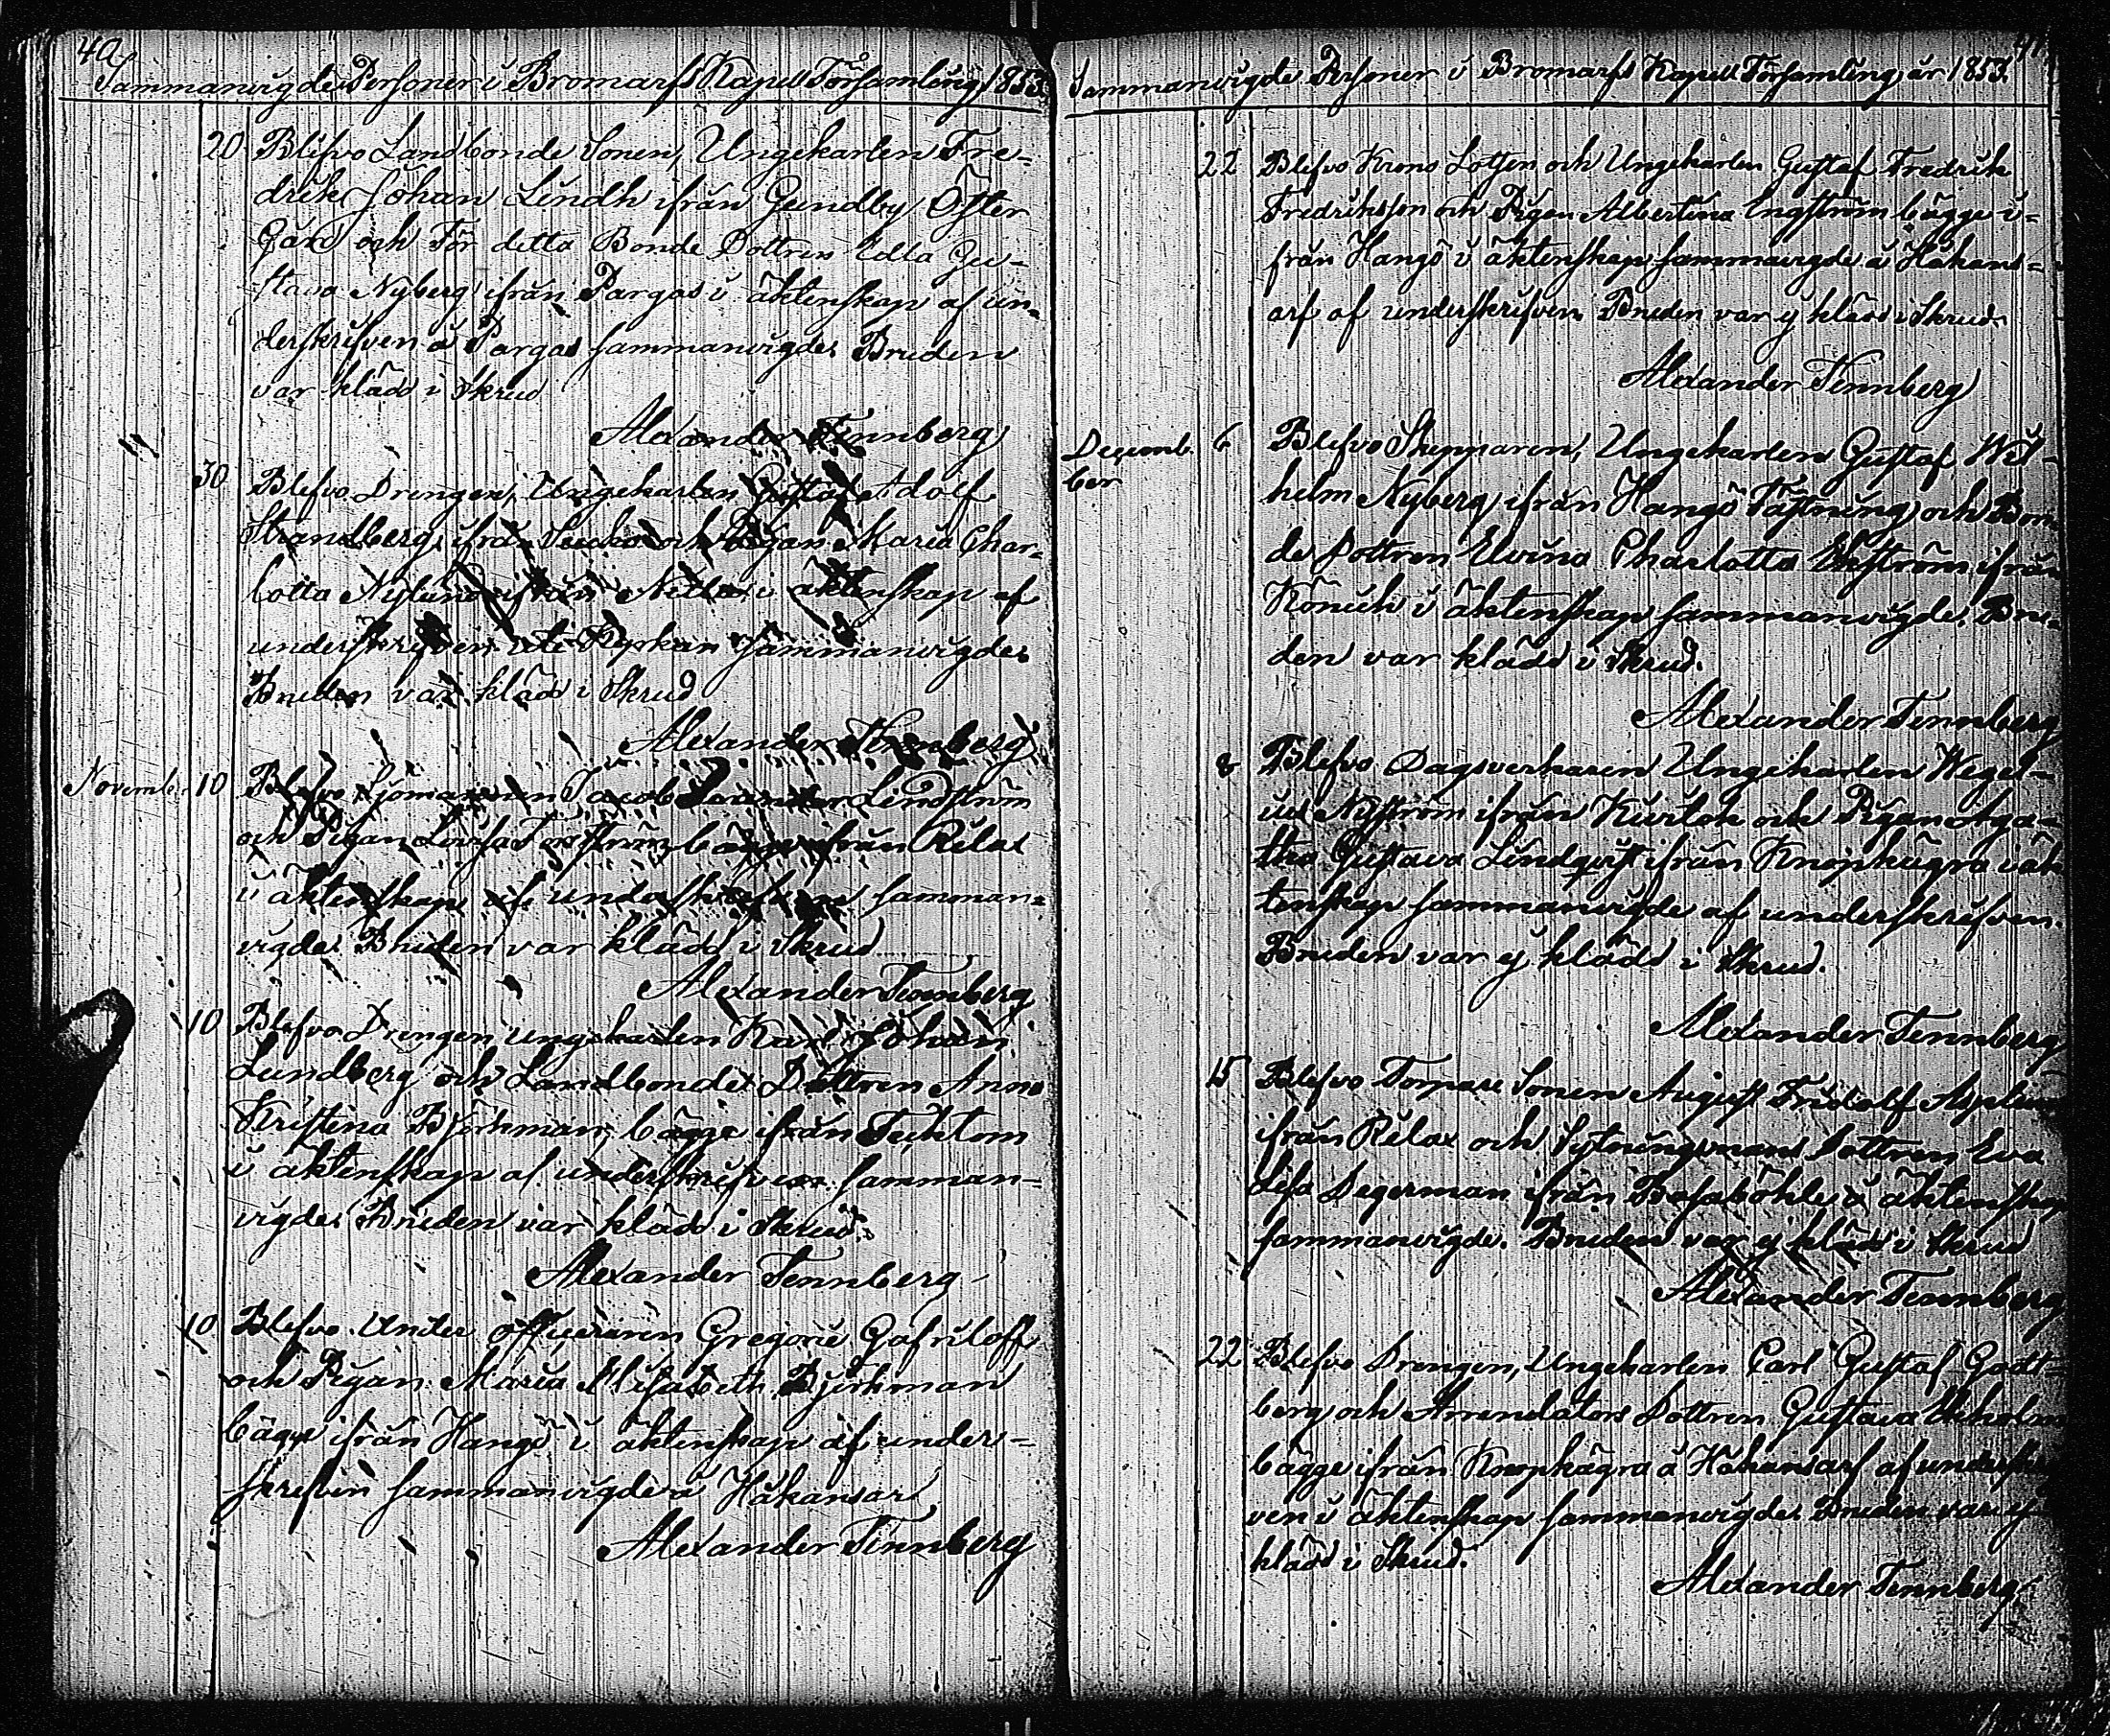 40
Sammanvigde Personer i Bromarfs Kapell Församling, 1853.
20 Blefvo Landbonde Sonen, Ungekarlen Fre-
drik Johan Lindh ifrån Gundby Öster
Gård och För detta Bonde Dottren Edla Gu-
stava Nyberg ifrån Pargas i äktenskap af un-
derskrifven å Pargas sammanvigde. Bruden
var klädd i Skrud
Alexander Tennberg
30 Blefvo Drengen, Ungekarlen Gustaf Adolf
Strandberg ifrån och Pigan Maria Char-
lotta Nylund ifrån i äktenskap af
underskrifven uti Kyrkan sammanvigde.
Bruden var klädd i Skrud
Alexander Tennberg
November 10 Blefvo Sjömannen Jacob Lindström
och Pigan Lovisa bägge ifrån Rilax
i äktenskap af underskrifven samman-
vigde. Bruden var klädd i Skrud
Alexander Tennberg
10 Blefvo Drengen, ungekarlen Karl Johan
Lundberg och Landbonde Dottren Anna
Kristina Björkman, bägge ifrån Täcktom
i äktenskap af underskrifven samman-
vigde. Bruden var klädd i Skrud.
Alexander Tennberg
10 Blefvo Under officeraren Gregorie Gafriloff
och Pigan Maria Elisabeth Björkman
bägge ifrån Hangö i äktenskap af under-
skrifven sammanvigde å Håkansarf
Alexander Tennberg
41
Sammanvigde Personer i Bromarfs Kapell Församling, år 1853.
22 Blefvo Krono Lotsen och Ungekarlen Gustaf Fredrik
Fredriksson och Pigan Albertina Engström bägge i-
från Hangö i äktenskap sammanvigde å Håkans-
arf af underskrifven. Bruden var ej klädd i Skrud.
Alexander Tennberg
Decemb- 6 Blefvo Skepparen, Ungekarlen Gustaf Wil-
ber helm Nyberg ifrån Hangö Fästning och Bon-
de Dottren Elvina Charlotta Ekström ifrån
i äktenskap sammanvigde. Bru-
den var klädd i Skrud.
Alexander Tennberg
8 Blefvo Dagsverkaren Ungekarlen Wegel-
ius Nyström ifrån och Pigan Aga-
tha Gustava Lindqvist ifrån Knopkägra i äk-
tenskap sammanvigde af underskrifven.
Bruden var ej klädd i Skrud.
Alexander Tennberg
15 Blefvo Torpare Sonen August Fridolf Asplund
ifrån Rilax och Sytningsmans Dottren Eva
Lisa Degerman ifrån i äktenskap
sammanvigde. Bruden var ej klädd i Skrud
Alexander Tennberg
22 Blefvo Drengen, Ungekarlen Carl Gustaf Gott-
berg och Arrendators Dottren Gustava Ekholm
bägge ifrån Knopkägra å Håkansarf af underskrif-
ven i äktenskap sammanvigde. Bruden var ej
klädd i Skrud.
Alexander Tennberg